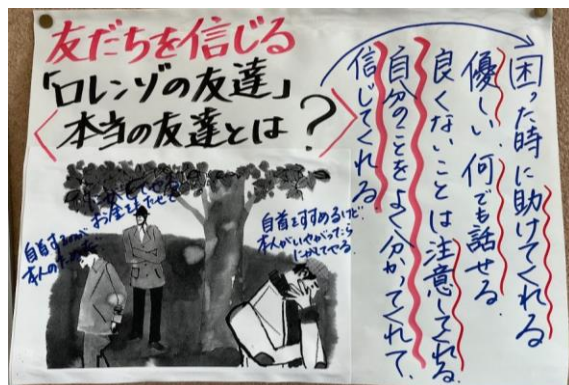 友だちを信じる
「ロレンゾの友達」
〈本当の友達とは?〉
困った時に助けてくれる
優しい、何でも話せる
良くないことは注意してくれる。
自分のことをよく分かってくれて、
信じてくれる
お金を持たせて
自首するのが
本人のため
自首をすすめるけど、
本人がいやがったら
にがしてやる。